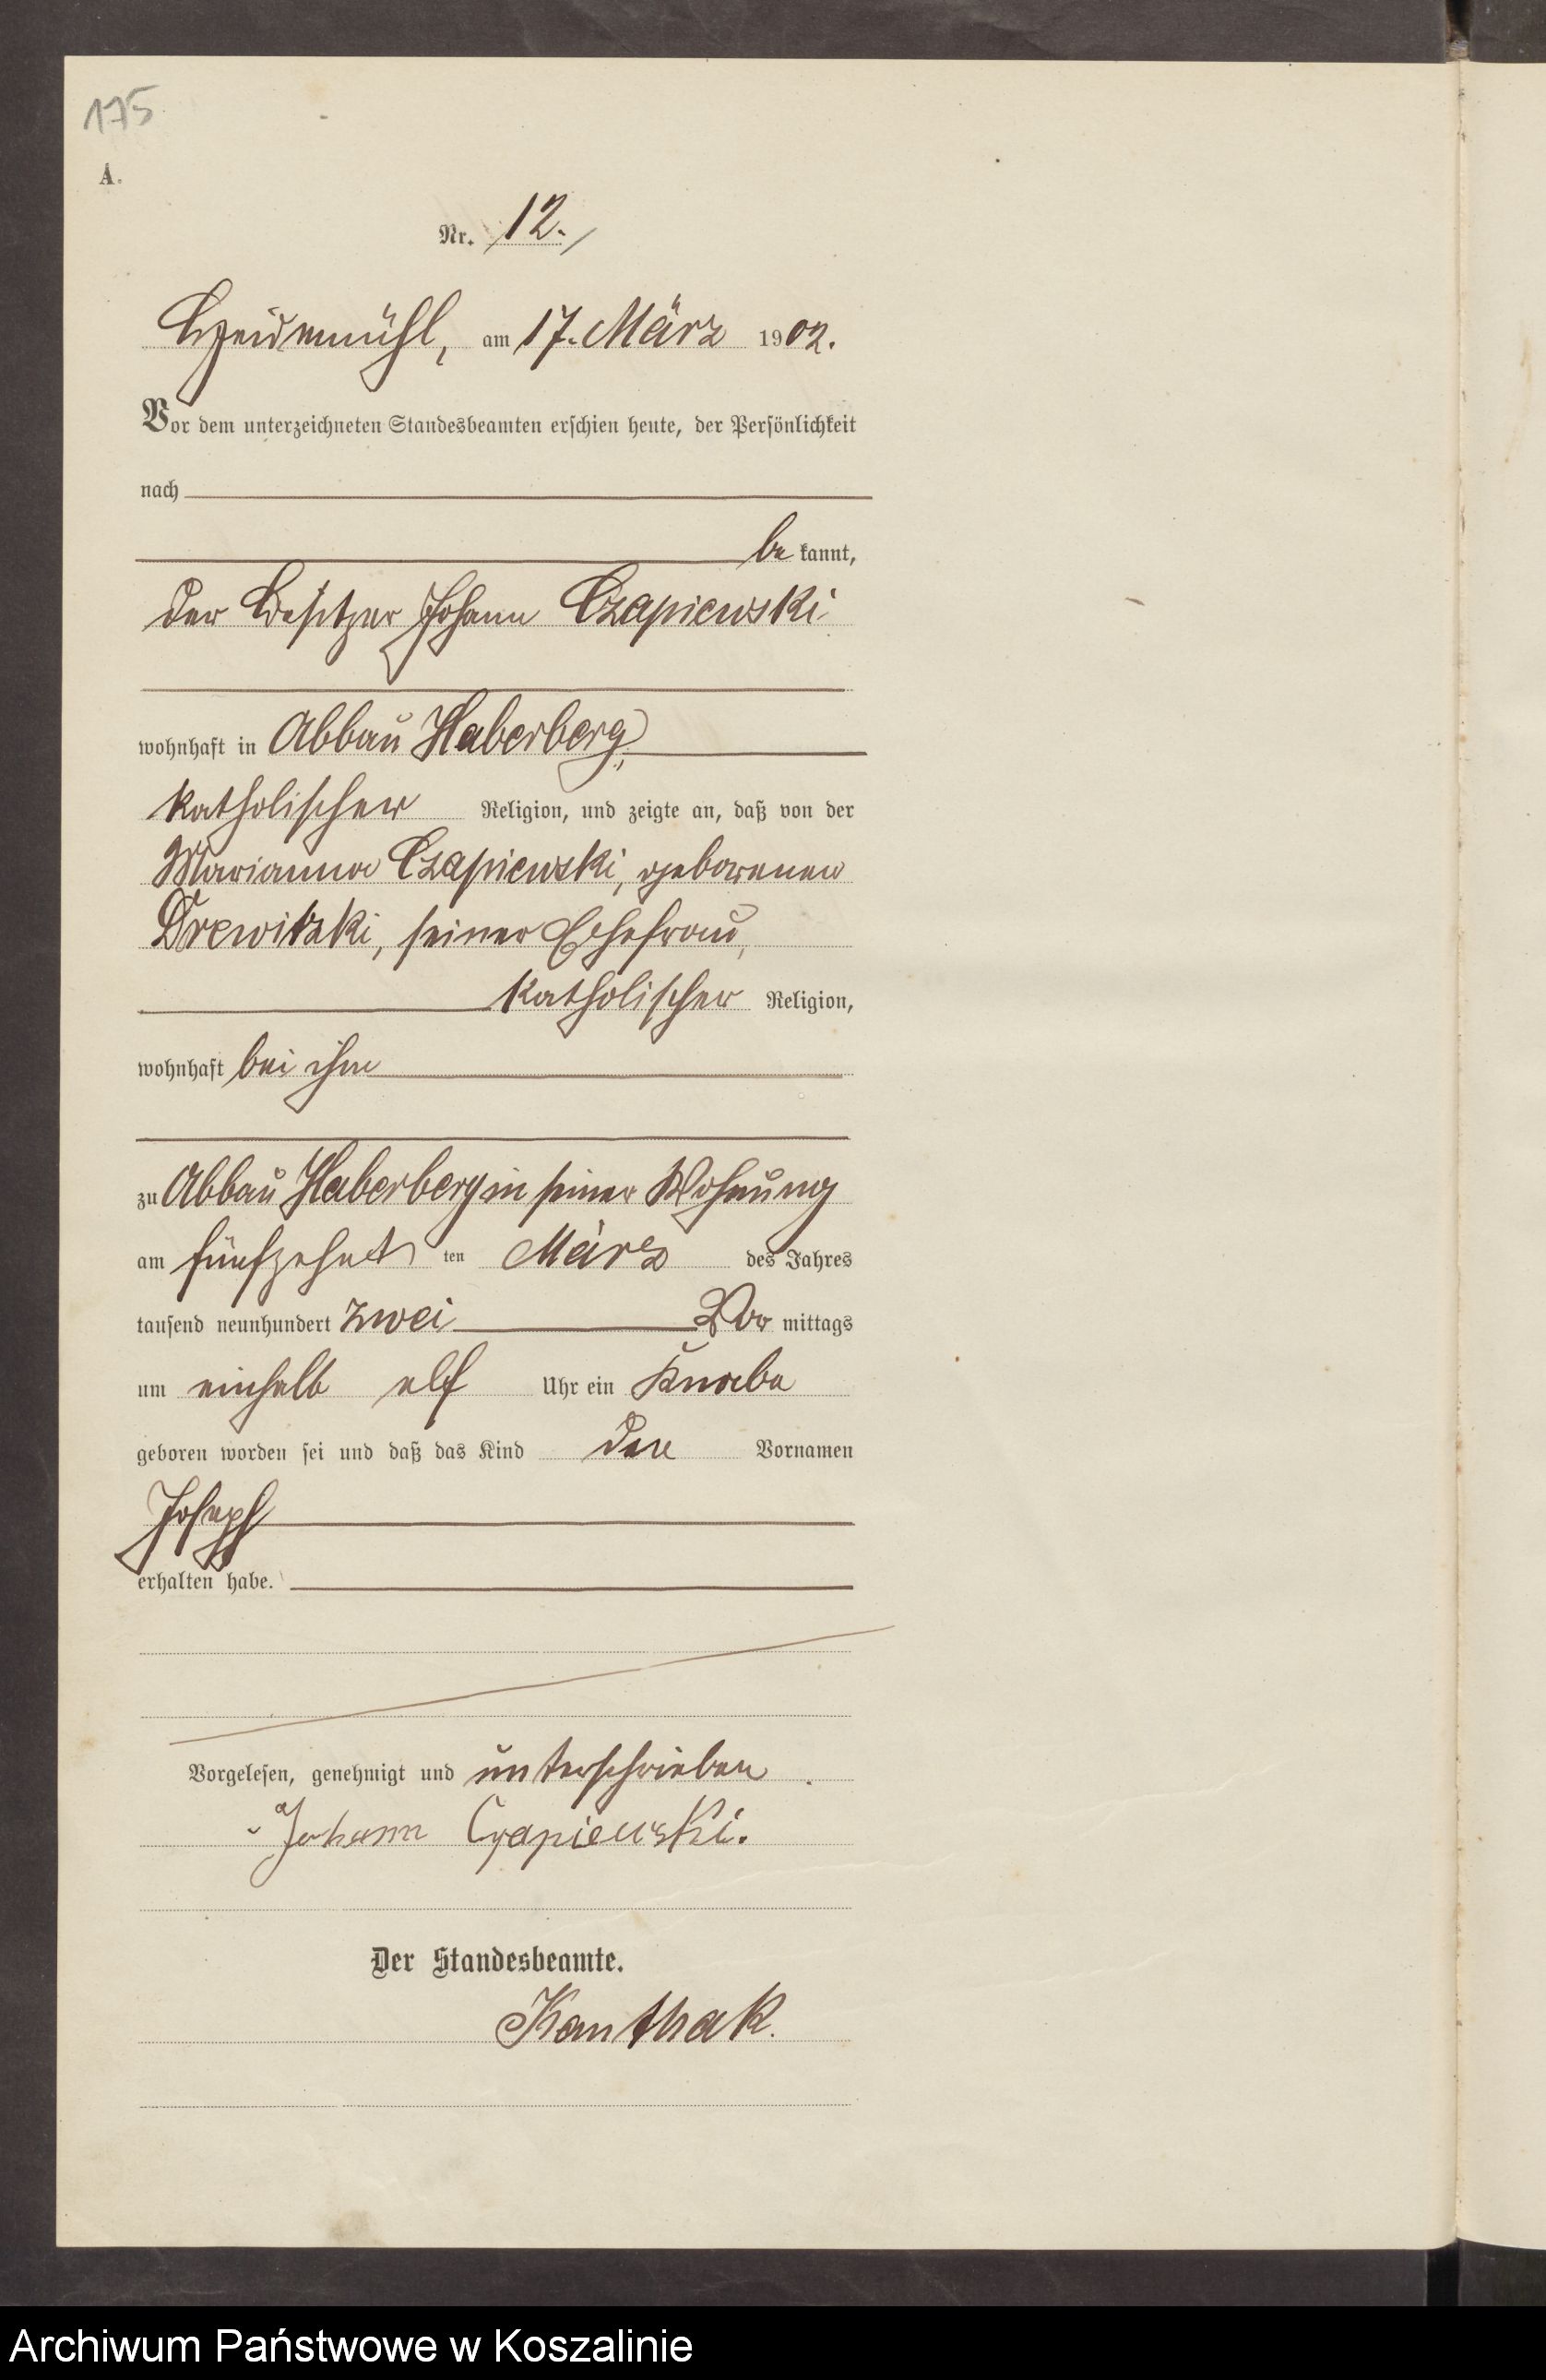 175
A.
Nr. 12.
Heidemühl, am 17. März 1902.
Vor dem unterzeichneten Standesbeamten erschien heute, der Persönlichkeit
nach
be kannt,
der Besitzer Johann Czapiewski
wohnhaft in Abbau Haberberg,
katholischer Religion, und zeigte an, daß von der
Marianna Czapiewski, geborenen
Drewitzki, seiner Ehefrau,
katholischer Religion,
wohnhaft bei ihm
zu Abbau Haberberg in seiner Wohnung
am fünfzehnt ten März des Jahres
tausend neunhundert zwei Vor mittags
um einhalb elf Uhr ein Knabe
geboren worden sei und daß das Kind den Vornamen
Joseph
erhalten habe.
Vorgelesen, genehmigt und unterschrieben.
Johann Czapiewski.
Der Standesbeamte.
Kanthak.
Archiwum Państwowe w Koszalinie